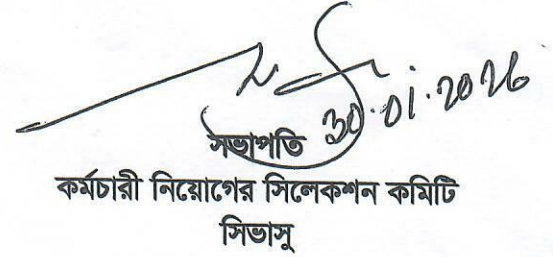 30.01.2026
সভাপতি
কর্মচারী নিয়োগের সিলেকশন কমিটি
সিভাসু